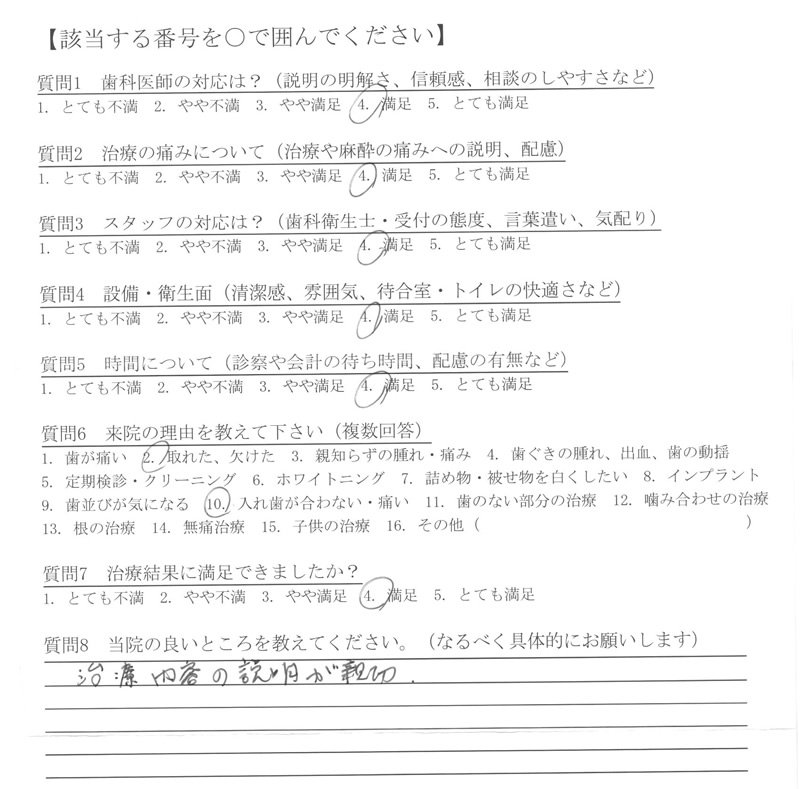 【該当する番号を○で囲んでください】
質問1 歯科医師の対応は？（説明の明解さ、信頼感、相談のしやすさなど）
1. とても不満 2. やや不満 3. やや満足 4. 満足 5. とても満足
質問2 治療の痛みについて（治療や麻酔の痛みへの説明、配慮）
1. とても不満 2. やや不満 3. やや満足 4. 満足 5. とても満足
質問3 スタッフの対応は？（歯科衛生士・受付の態度、言葉遣い、気配り）
1. とても不満 2. やや不満 3. やや満足 4. 満足 5. とても満足
質問4 設備・衛生面（清潔感、雰囲気、待合室・トイレの快適さなど）
1. とても不満 2. やや不満 3. やや満足 4. 満足 5. とても満足
質問5 時間について（診察や会計の待ち時間、配慮の有無など）
1. とても不満 2. やや不満 3. やや満足 4. 満足 5. とても満足
質問6 来院の理由を教えて下さい（複数回答）
1. 歯が痛い 2. 取れた、欠けた 3. 親知らずの腫れ・痛み 4. 歯ぐきの腫れ、出血、歯の動揺
5. 定期検診・クリーニング 6. ホワイトニング 7. 詰め物・被せ物を白くしたい 8. インプラント
9. 歯並びが気になる 10. 入れ歯が合わない・痛い 11. 歯のない部分の治療 12. 噛み合わせの治療
13. 根の治療 14. 無痛治療 15. 子供の治療 16. その他（ ）
質問7 治療結果に満足できましたか？
1. とても不満 2. やや不満 3. やや満足 4. 満足 5. とても満足
質問8 当院の良いところを教えてください。（なるべく具体的にお願いします）
治療内容の説明が親切.